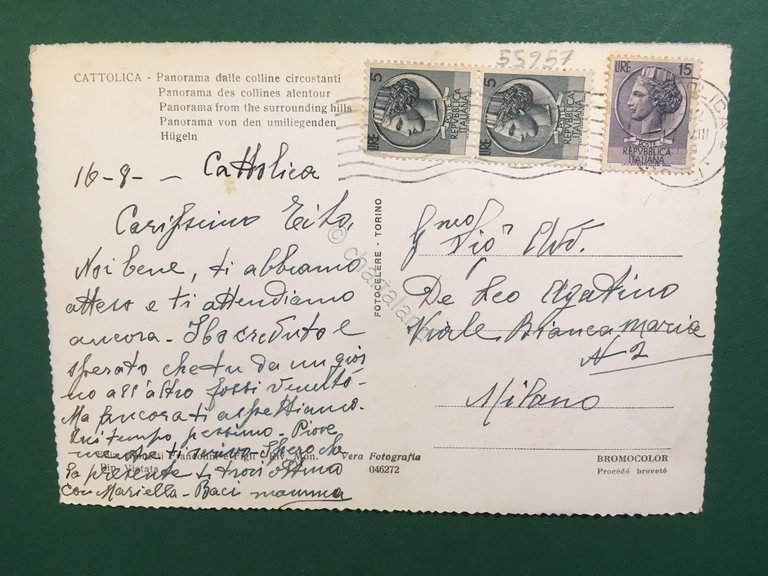 55957
CATTOLICA - Panorama dalle colline circostanti
Panorama des collines alentour
Panorama from the surrounding hills
Panorama von den umliegenden
Hügeln
LIRE 5
POSTE
REPVBBLICA
ITALIANA
LIRE 5
POSTE
REPVBBLICA
ITALIANA
LIRE 15
POSTE
REPVBBLICA
ITALIANA
16-8- - Cattolica
Carissimo Tito,
Noi bene, ti abbiamo
atteso e ti attendiamo
ancora - Ho creduto e
sperato che tu da un gior
no all'altro fossi venuto -
Ma ancora ti aspettiamo.
Qui tempo pessimo - Piove
Spero che
la presente ti trovi ottimo
con Mariella - Baci mamma
FOTOCELERE - TORINO
Vera Fotografia
046272
Rip. Vietata
BROMOCOLOR
Procédé breveté
De Leo Agatino
Viale Bianca Maria
N 2
Milano